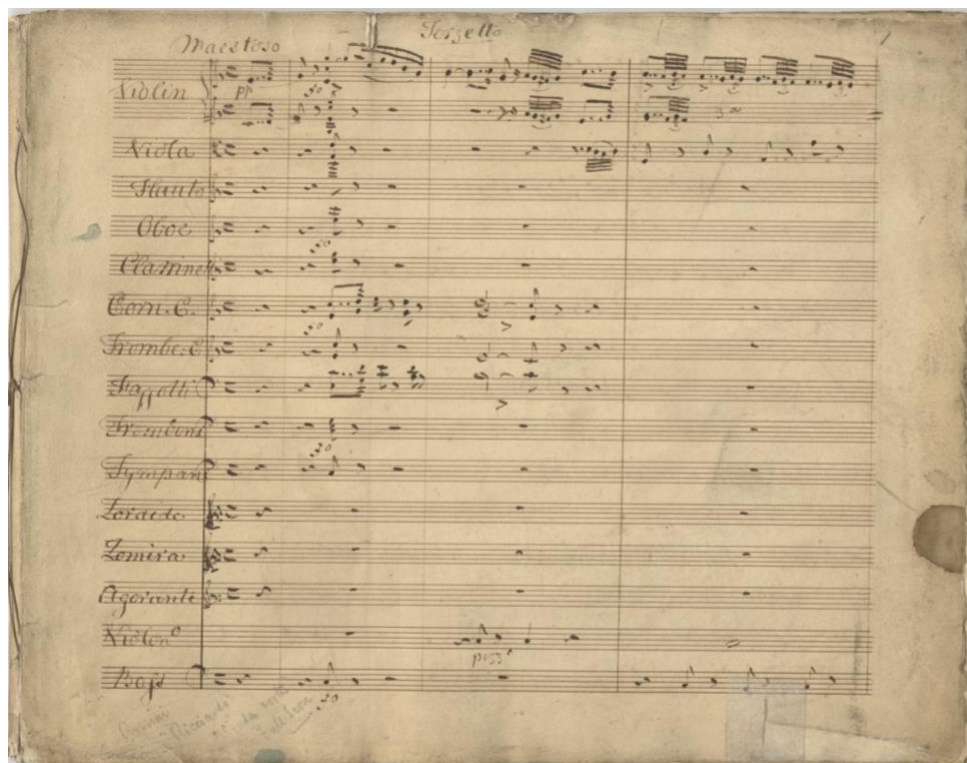 Terzetto
Maestoso
Violin
pp
Viola
Flauto
Oboe
Clarinet
Corn. C.
Trombe. C
Fagotti
Tromboni
Tympani
Zoraide
Zomira
Agorante
Violon
pizz
Bass
Ricciardo